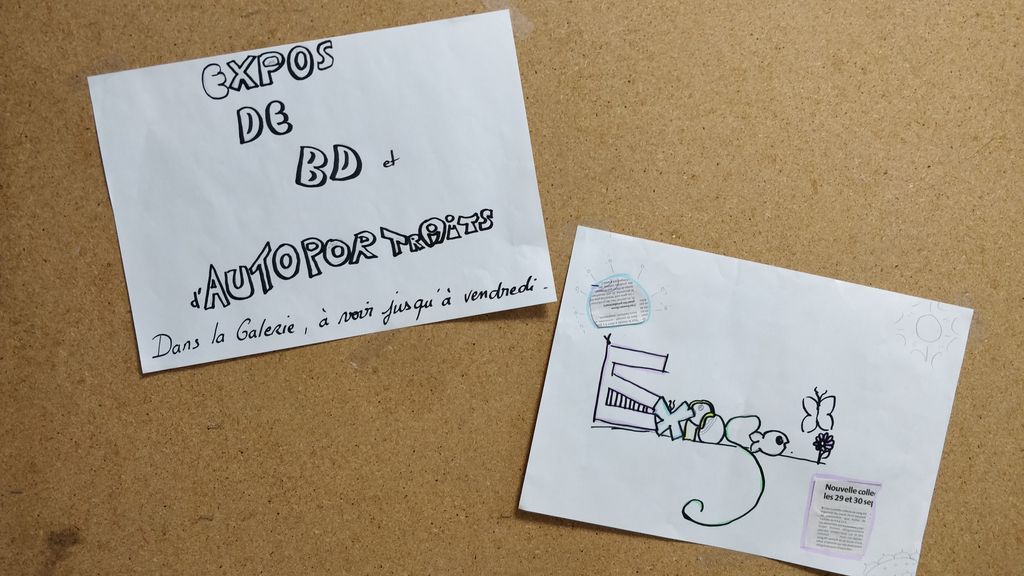 EXPOS
DE
BD et
d'AUTOPORTRAITS
Dans la Galerie, à voir jusqu'à vendredi.
Expos
Nouvelle colle
les 29 et 30 sep